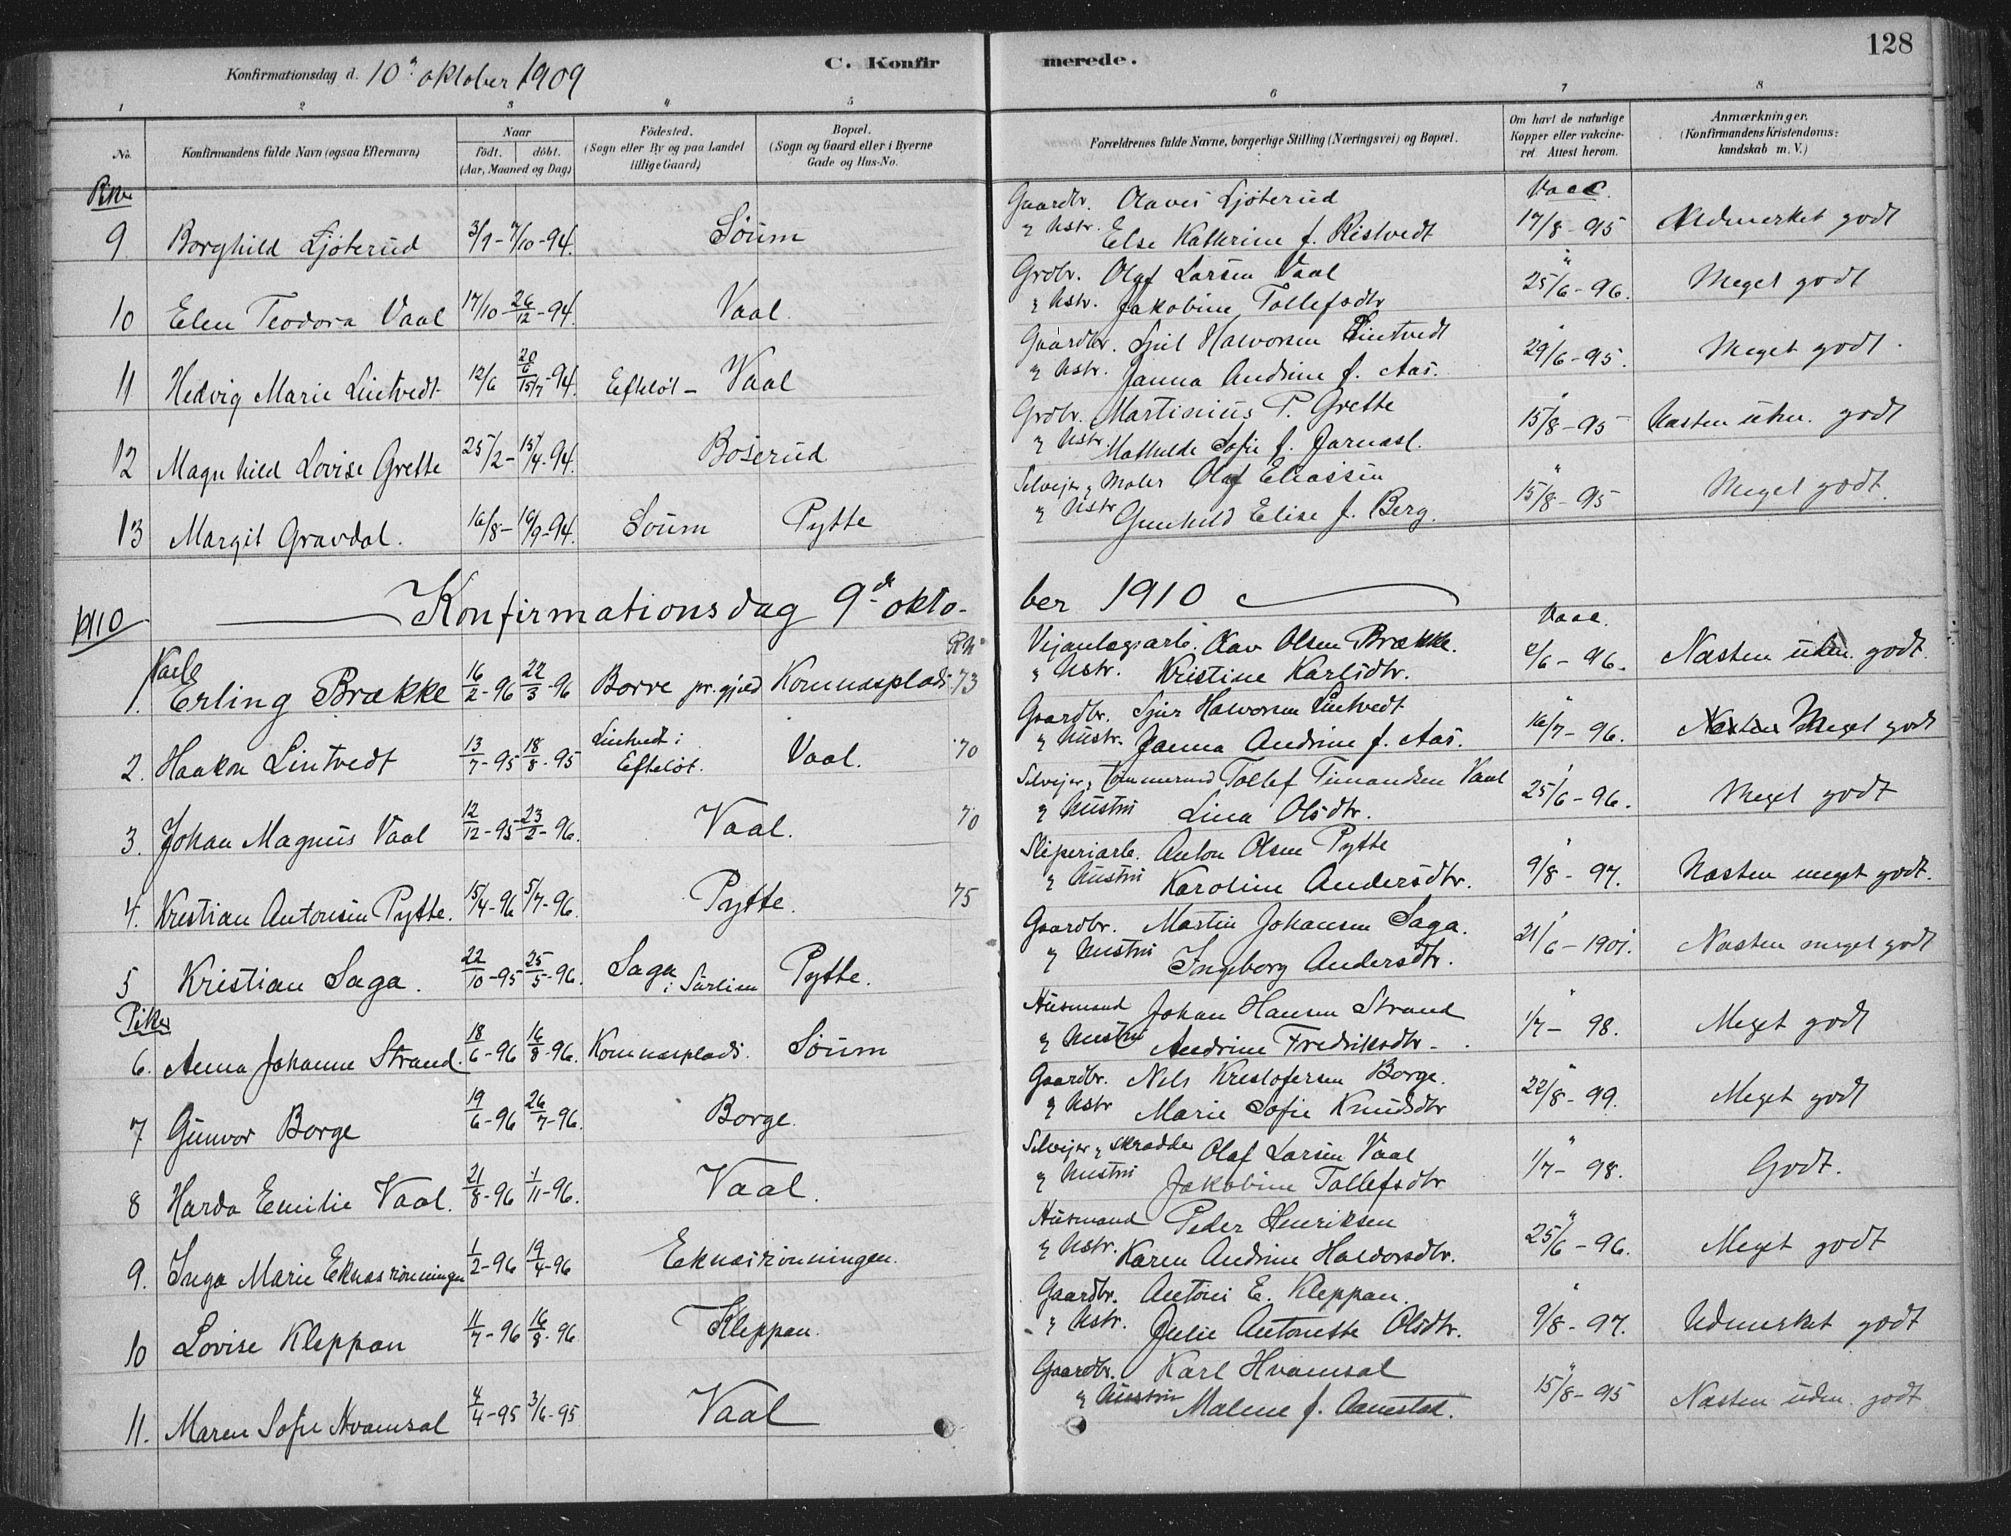 128
Konfirmationsdag d. 10de oktober 1909 C. Konfir merede.
1 2 3 4 5 6 7 8
No. Konfirmandens fulde Navn (ogsaa Efternavn) Naar født, døbt. (Aar, Maaned og Dag) Fødested. (Sogn eller By og paa Landet tillige Gaard) Bopæl. (Sogn og Gaard eller i Byerne Gade og Hus-No. Forældrenes fulde Navne, borgerlige Stilling (Næringsvei) og Bopæl. Om havt de naturlige Kopper eller vakcineret. Attest herom. Anmærkninger. (Konfirmandens Kristendomskundskab m. V.)
Piker Vacc.
9 Borghild Ljøterud 3/9 - 7/10 - 94. Søum Gaardbr. Olaves Ljøterud 17/8 - 95 Udmerket godt
& Hstr. Else Kathrine f. Ristvedt
10 Elen Teodora Vaal 17/10 - 26/12 - 94. Vaal. Grdbr. Olaf Larsen Vaal 25/6 - 96. Meget godt
& Hstr. Jakobine Tollefsdtr
11 Hedvig Marie Lintvedt 12/6 15/7 - 94. Efteløt - Vaal Gaardbr. Sjul Halvorsen Lintvedt 29/6 - 95. Meget godt.
& Hstr. Janna Andrine f. Aas.
12 Magnhild Lovise Grette 25/2 - 15/4 - 94. Boserud Grdbr. Martinius P. Grette 15/8 - 95 Næsten udm. godt
& Hstr. Mathilde Sofie f. Jarnæsl.
13 Margit Gravdal. 16/8 - 16/9 - 94. Søum Pytte Selvejer & Maler Olaf Eliassen 15/8 - 95 Meget godt.
& Hstr Gunhild Elise f. Berg.
1910 Konfirmationsdag 9de oktober 1910
Vacc.
1. Karle Erling Brække 16/2 - 96 22/3 - 96 Borre pr.gjæld Komnæsplads 73 Vejanlægsarb. Aav Olsen Brække. 2/6 - 96. Næsten udm. godt.
& Hstr. Kristine Karlsdtr.
2. Haakon Lintvedt 13/7 - 95 18/8 - 95 Lintvedt i Efteløt. Vaal. 70 Gaardbr. Sjur Halvorsen Lintvedt 16/7 - 96. Næsten Meget godt
& Hustr. Janna Andrine f. Aas.
3. Johan Magnus Vaal 12/12 - 95 23/2 - 96. Vaal. 70 Selvejer & Tømmermd Tollef Timandsen Vaal 25/6 - 96. Meget godt
& Hustru Lina Olsdtr.
4. Kristian Antonsen Pytte. 15/4 - 96 5/7 - 96. Pytte. 75 Sliperiarb. Anton Olsen Pytte 9/8 - 97. Næsten meget godt.
& Hustru Karoline Andersdtr.
5 Kristian Saga. 22/10 - 95 25/5 - 96. Saga i Sørlien Pytte. Gaardbr. Martin Johansen Saga. 21/6 - 1901. Næsten meget godt
& Hustru Ingeborg Andersdtr.
Piker
6. Anna Johanne Strand. 18/6 - 96 16/8 - 96. Komnæsplads. Søum Husmand Johan Hansen Strand 1/7 - 98. Meget godt
& Hustru Andrine Fredriksdtr.
7 Gunvor Borge 19/6 - 96 26/7 - 96. Borge. Gaardbr. Nels Kristofersen Borge. 22/8 - 99. Meget godt
& Hstr Marie Sofie Knudsdtr
8 Harda Emilie Vaal. 21/8 - 96 1/11 - 96. Vaal. Selvejer & Skrædder Olaf Larsen Vaal 1/7 - 98. Godt.
& Hustru Jakobine Tollefsdtr
9. Inga Marie Eknæsrönningen 1/2 - 96 19/4 - 96 Eknæsrönningen. Husmand Peder Henriksen 25/6 - 96. Meget godt
& Hstr. Karen Andrine Haldorsdtr.
10 Lovise Kleppan 11/7 - 96 16/8 - 96 Kleppan. Gaardbr. Antoni E. Kleppan. 9/8 - 97. Udmerket godt
& Hstr. Julie Antonette Olsdtr.
11. Maren Sofie Hvamsal 4/4 - 95 3/6 - 95 Vaal Gaardbr. Karl Hvamsal 15/8 - 95 Næsten udm. godt
& Hustru Malene f. Aanestad.